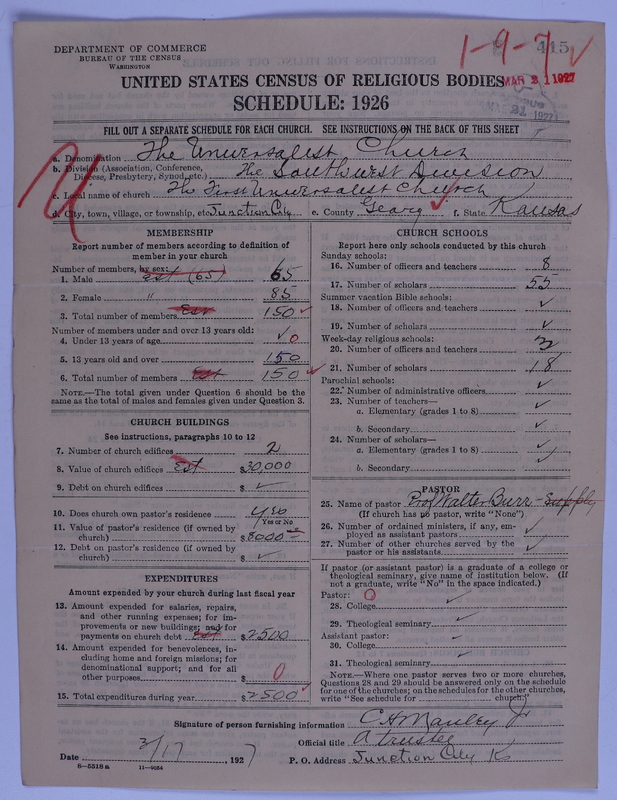 DEPARTMENT OF COMMERCE
BUREAU OF THE CENSUS
WASHINGTON
1-9-7 ✓
415
UNITED STATES CENSUS OF RELIGIOUS BODIES
MAR 21 1927
SCHEDULE: 1926
FILL OUT A SEPARATE SCHEDULE FOR EACH CHURCH. SEE INSTRUCTIONS ON THE BACK OF THIS SHEET
a. Denomination The Universalist Church
b. Division (Association, Conference, Diocese, Presbytery, Synod, etc.) The Southwest Division
c. Local name of church The First Universalist Church
d. City, town, village, or township, etc. Junction City e. County Geary ✓ f. State Kansas
MEMBERSHIP
Report number of members according to definition of
member in your church
Number of members, by sex:
1. Male est (65) 65
2. Female " 85
3. Total number of members Est 150 ✓
Number of members under and over 13 years old:
4. Under 13 years of age ✓ 0
5. 13 years old and over 150
6. Total number of members Est 150 ✓
NOTE.—The total given under Question 6 should be the
same as the total of males and females given under Question 3.
CHURCH BUILDINGS
See instructions, paragraphs 10 to 12
7. Number of church edifices 2
8. Value of church edifices Est $30,000
9. Debt on church edifices $ ✓
10. Does church own pastor's residence yes
Yes or No
11. Value of pastor's residence (if owned by
church) $8000
12. Debt on pastor's residence (if owned by
church) $ ✓
EXPENDITURES
Amount expended by your church during last fiscal year
13. Amount expended for salaries, repairs,
and other running expenses; for im-
provements or new buildings; and for
payments on church debt est $2500
14. Amount expended for benevolences, in-
cluding home and foreign missions; for
denominational support; and for all
other purposes $ 0
15. Total expenditures during year $2500 ✓
CHURCH SCHOOLS
Report here only schools conducted by this church
Sunday schools:
16. Number of officers and teachers 8
17. Number of scholars 55
Summer vacation Bible schools:
18. Number of officers and teachers ✓
19. Number of scholars ✓
Week-day religious schools:
20. Number of officers and teachers 3
21. Number of scholars 18
Parochial schools:
22. Number of administrative officers ✓
23. Number of teachers—
a. Elementary (grades 1 to 8) ✓
b. Secondary ✓
24. Number of scholars—
a. Elementary (grades 1 to 8) ✓
b. Secondary ✓
PASTOR
25. Name of pastor Prof Walter Burr - Supply
(If church has no pastor, write "None")
26. Number of ordained ministers, if any, em-
ployed as assistant pastors ✓
27. Number of other churches served by the
pastor or his assistants ✓
If pastor (or assistant pastor) is a graduate of a college or
theological seminary, give name of institution below. (If
not a graduate, write "No" in the space indicated.)
Pastor: 0
28. College ✓
29. Theological seminary ✓
Assistant pastor:
30. College ✓
31. Theological seminary ✓
NOTE.—Where one pastor serves two or more churches,
Questions 28 and 29 should be answered only on the schedule
for one of the churches; on the schedules for the other churches,
write "See schedule for church."
Signature of person furnishing information C H Manley Jr
Official title A trustee
Date 3/17, 1927 P. O. Address Junction City Ks
8—5518 a 11—9084